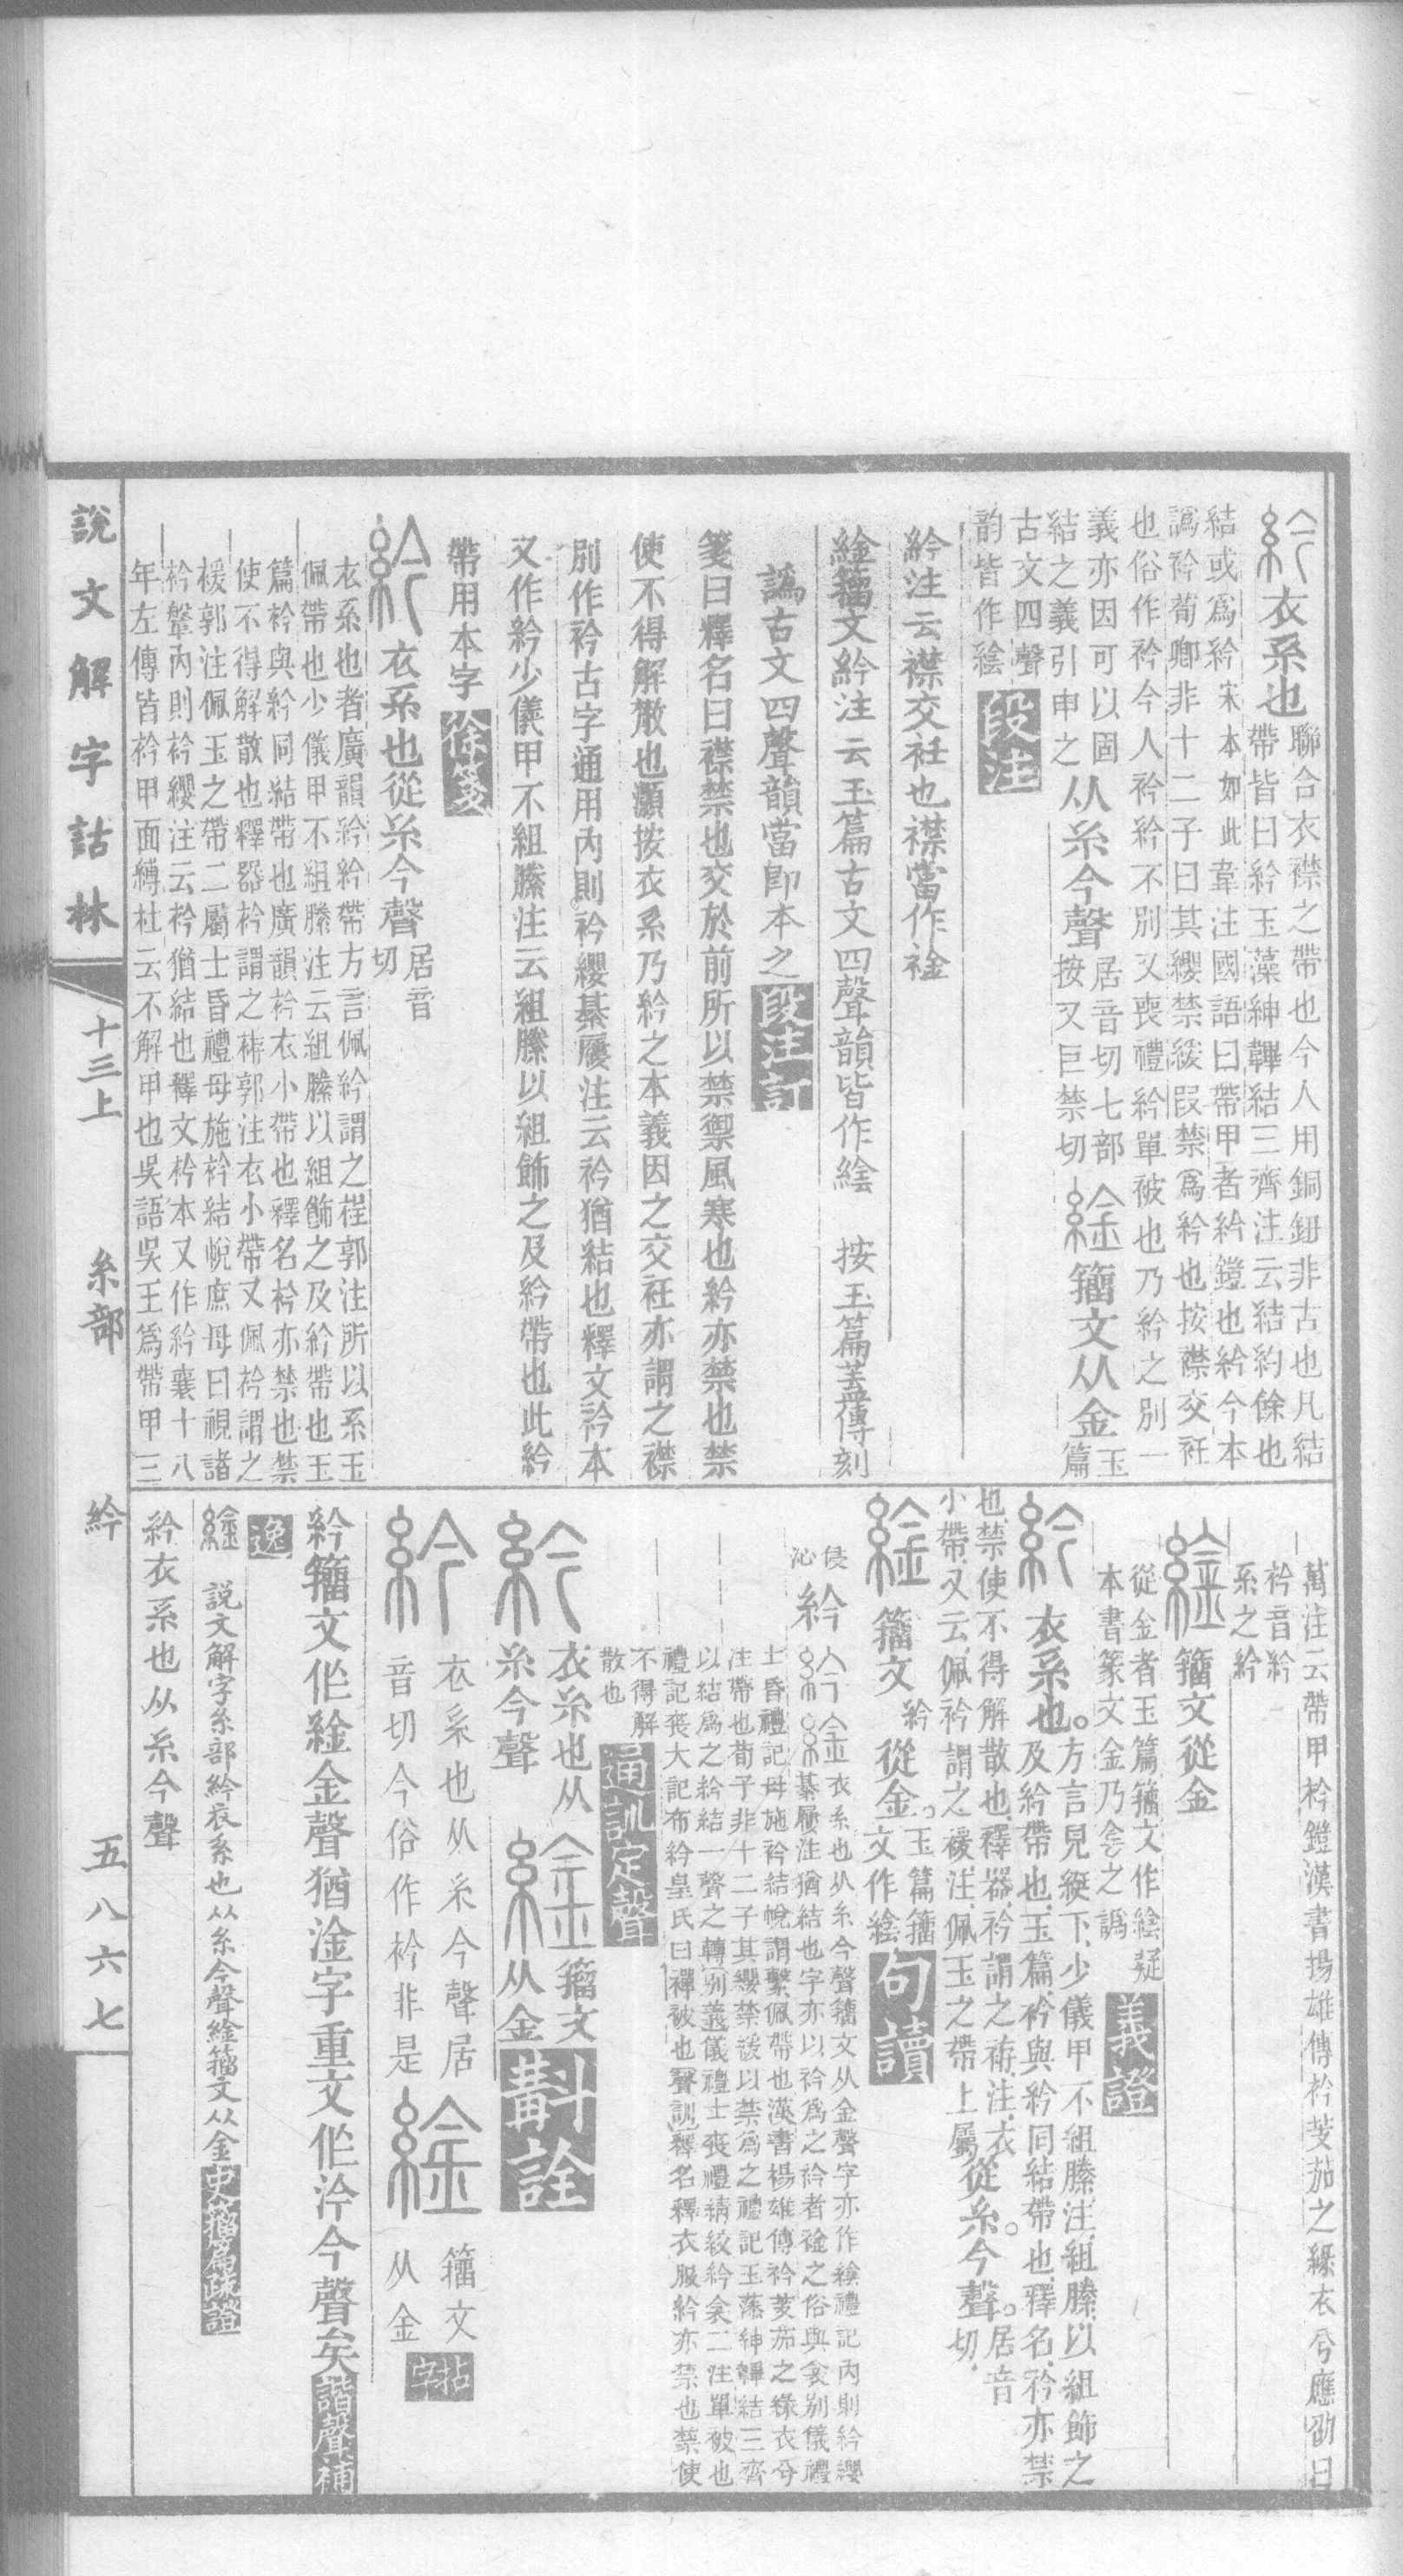 紟衣系也
聯合衣襟之帶也今人用銅鈕非古也凡結
帶皆曰紟玉藻紳韠結三齊注云結約餘也
結或爲紟宋本如此韋注國語曰帶甲者紟鎧也紟今本
譌衿荀卿非十二子曰其纓禁緩叚禁爲紟也按襟交衽
也俗作衿今人衿紟不別又喪禮紟單被也乃紟之別一
義亦因可以固
結之義引申之
从糸今聲
居音切七部
按又巨禁切
䋮籀文从金
玉
篇
古文四聲
韵皆作䋮
段注
紟注云襟交衽也襟當作䘳
䋮籀文紟注云玉篇古文四聲韻皆作䋮 按玉篇葢傳刻
譌古文四聲韻當卽本之
段注訂
箋曰釋名曰襟禁也交於前所以禁禦風寒也紟亦禁也禁
使不得解散也灝按衣系乃紟之本義因之交衽亦謂之襟
別作衿古字通用內則衿纓綦屨注云衿猶結也釋文衿本
又作紟少儀甲不組縢注云組縢以組飾之及紟帶也此紟
帶用本字
徐箋
紟衣系也從糸今聲
居音
切
衣系也者廣韻紟紟帶方言佩紟謂之裎郭注所以系玉
佩帶也少儀甲不組縢注云組縢以組飾之及紟帶也玉
篇衿與紟同結帶也廣韻衿衣小帶也釋名衿亦禁也禁
使不得解散也釋器衿謂之袸郭注衣小帶又佩衿謂之
褑郭注佩玉之帶二屬士昏禮母施衿結帨庶母曰視諸
衿鞶內則衿纓注云衿猶結也釋文衿本又作紟襄十八
年左傳皆衿甲面縛杜云不解甲也吳語吳王爲帶甲三
萬注云帶甲衿鎧漢書揚雄傳衿芰茄之綠衣兮應劭曰
衿音紟
系之紟
䋮籀文從金
從金者玉篇籀文作䋮疑
本書篆文金乃之譌
義證
紟衣系也。
方言見綎下、少儀甲不組縢注、組縢、以組飾之
及紟帶也、玉篇、衿與紟同結帶也、釋名、衿亦禁
也、禁使不得解散也、釋器、衿謂之袸、注、衣
小帶、又云、佩衿謂之褑、注、佩玉之帶上屬、
從糸。今聲。
居音
切、
䋮籀文紟從金。
玉篇籀
文作䋮
句讀
侵
沁
紟
紟䋮衣系也从糸今聲籀文从金聲字亦作襟禮記內則紟纓
綦屨注猶結也字亦以衿爲之衿者䘳之俗與衾別儀禮
士昏禮記母施衿結帨謂繫佩帶也漢書楊雄傳衿芰茄之綠衣兮
注帶也荀子非十二子其纓禁緩以禁爲之禮記玉藻紳韠結三齊
以結爲之紟結一聲之轉別義儀禮士喪禮綪絞紟衾二注單被也
禮記喪大記布紟皇氏曰襌被也聲訓釋名釋衣服紟亦禁也禁使
不得解
散也
通訓定聲
紟衣糸也从
糸今聲
䋮籀文
从金
斠詮
紟
衣系也从糸今聲居
音切今俗作衿非是
䋮
籀文
从金
拈字
紟籀文作䋮金聲猶淦字重文作汵今聲矣
諧聲補
逸
䋮 説文解字糸部紟衣系也从糸今聲䋮籀文从金
史籀篇疏證
紟衣系也从糸今聲
說文解字詁林
十三上
糸部
紟
五八六七